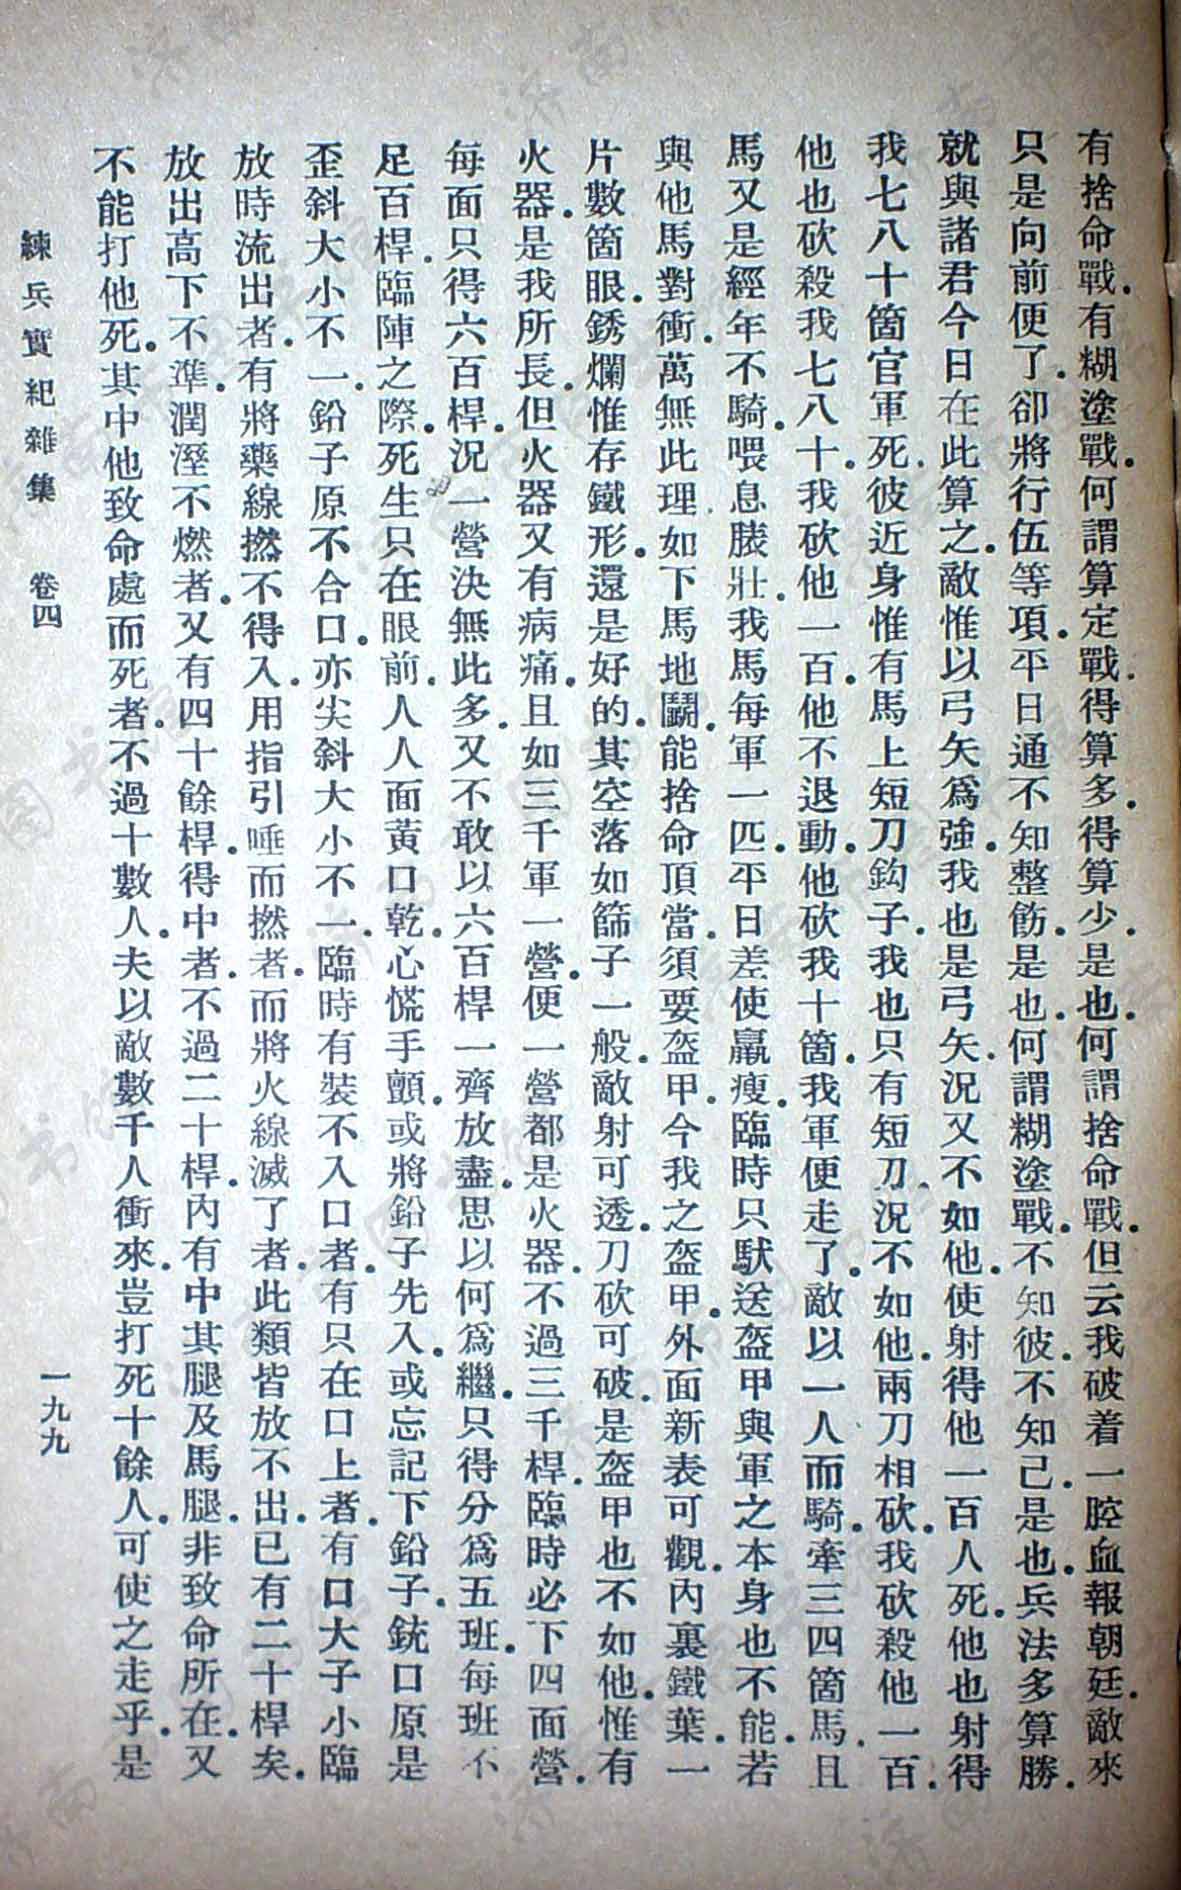 有捨命戰。有糊塗戰。何謂算定戰。得算多。得算少。是也。何謂捨命戰。但云我破着一腔血報朝廷。敵來
只是向前便了。卻將行伍等項。平日通不知整飭。是也。何謂糊塗戰。不知彼。不知己。是也。兵法多算勝。
就與諸君今日在此算之。敵惟以弓矢爲強。我也是弓矢。況又不如他。使射得他一百人死。他也射得
我七八十箇官軍死。彼近身惟有馬上短刀鈎子。我也只有短刀。況不如他。兩刀相砍。我砍殺他一百。
他也砍殺我七八十。我砍他一百。他不退動。他砍我十箇。我軍便走了。敵以一人而騎牽三四箇馬。且
馬又是經年不騎。喂息膘壯。我馬每軍一匹。平日差使羸瘦。臨時只馱送盔甲與軍之本身也不能。若
與他馬對衝。萬無此理。如下馬地鬭。能捨命頂當。須要盔甲。今我之盔甲。外面新表可觀。內裏鐵葉一
片數箇眼。銹爛惟存鐵形。還是好的。其空落如篩子一般。敵射可透。刀砍可破。是盔甲也不如他。惟有
火器。是我所長。但火器又有病痛。且如三千軍一營。便一營都是火器。不過三千桿。臨時必下四面營。
每面只得六百桿。況一營決無此多。又不敢以六百桿一齊放盡。思以何爲繼。只得分爲五班。每班不
足百桿。臨陣之際。死生只在眼前。人人面黃口乾。心慌手顫。或將鉛子先入。或忘記下鉛子。銃口原是
歪斜大小不一。鉛子原不合口。亦尖斜大小不一。臨時有裝不入口者。有只在口上者。有口大子小臨
放時流出者。有將藥線撚不得入。用指引唾而撚者。而將火線滅了者。此類皆放不出。已有二十桿矣。
放出高下不準。潤溼不燃者。又有四十餘桿。得中者。不過二十桿。內有中其腿及馬腿。非致命所在。又
不能打他死。其中他致命處而死者。不過十數人。夫以敵數千人衝來。豈打死十餘人。可使之走乎。是
練兵實紀雜集　卷四　一九九